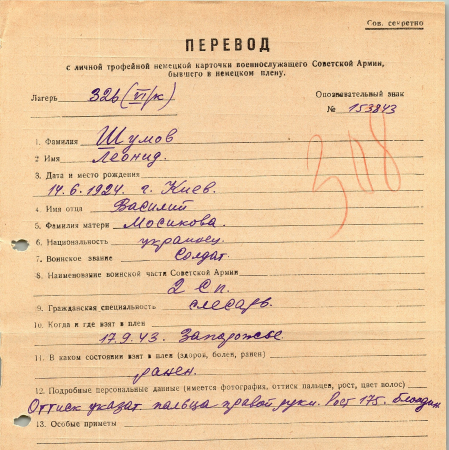 Сов. секретно
ПЕРЕВОД
с личной трофейной немецкой карточки военнослужащего Советской Армии,
бывшего в немецком плену.
Лагерь 326 (VI/к) Опознавательный знак
№ 153843
308
1. Фамилия Шумов
2 Имя Леонид.
3. Дата и место рождения
14.6.1924. г. Киев.
4. Имя отца Василий
5. Фамилия матери Мосикова.
6. Национальность украинец.
7. Воинское звание Солдат.
8. Наименование воинской части Советской Армии
2 Сп.
9. Гражданская специальность слесарь.
10. Когда и где взят в плен
17.9.43. Запорожье.
11. В каком состоянии взят в плен (здоров, болен, ранен)
ранен.
12. Подробные персональные данные (имеется фотография, оттиск пальцев, рост, цвет волос)
Оттиск указат пальца правой руки. Рост 175. блондин.
13. Особые приметы